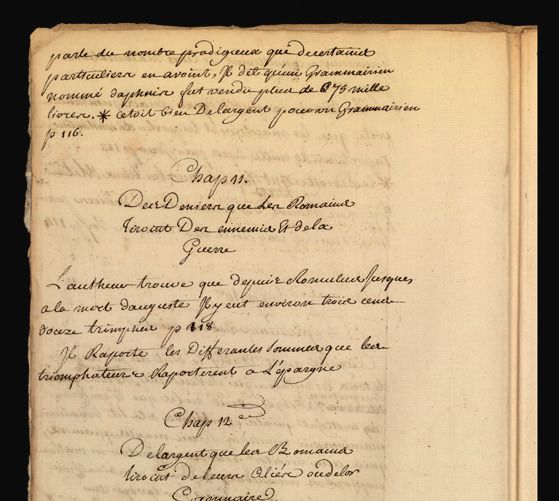 parle du nombre prodigieux que decertains
particuliers en avoint, Il dit qu'un Grammairien
nommé daphnis fut vendu plus de 675 mille
livres. * cetoit bien Delargent pour un Grammairien
p 116.
Chap 11.
Des Deniers que Les Romains
tiroint Des ennemis Et dela
Guerre
L'autheur trouve que depuis Romulus Jusques
a la mort dauguste Il y eut environ trois cens
douze triomphes p 118
Il Raporte les Differantes Sommes que les
triomphateurs Raporterent a L'epargne
Chap 12e
Delargent que les Romains
tiroint deleurs aliés oudelor
Coronnaire